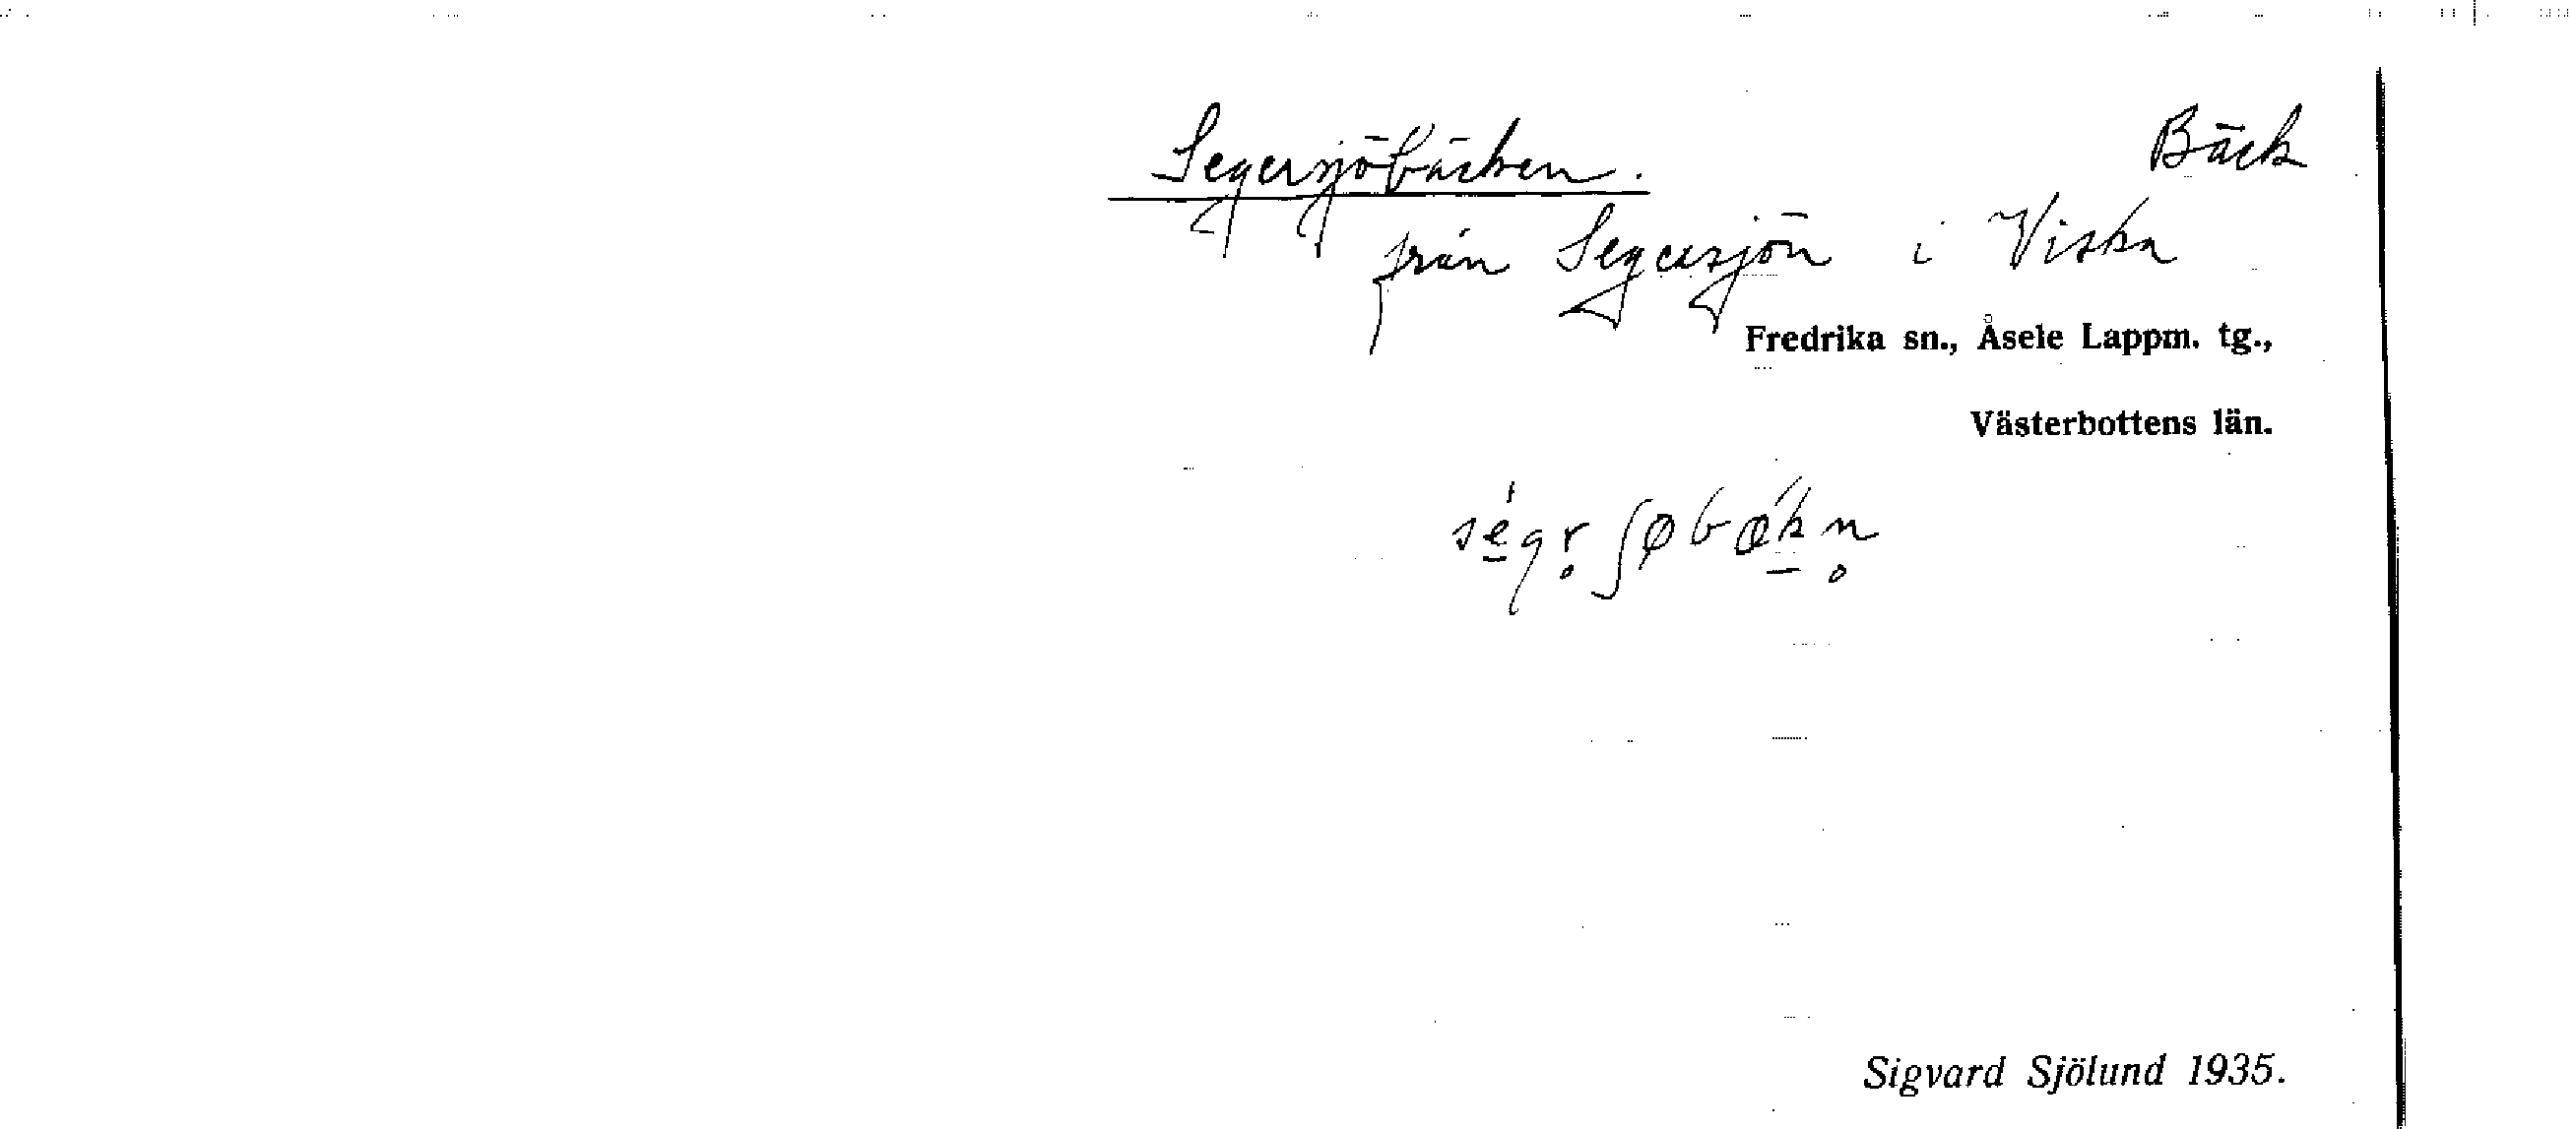 Segersjöbäcken. Bäck
från Segersjön i Viska
Fredrika sn., Åsele Lappm. tg.,
Västerbottens län.
ségr̥ʃøbǽkn̥
Sigvard Sjölund 1935.